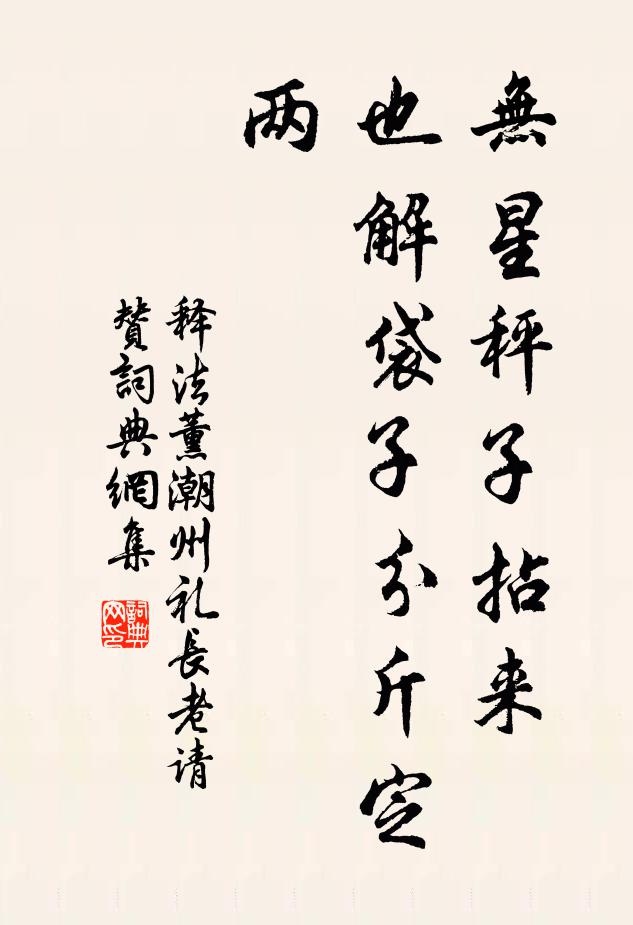 無星秤子拈来
也解袋子分斤定
两
释法薰潮州礼長老请
賛詞典網集
詞典
网印